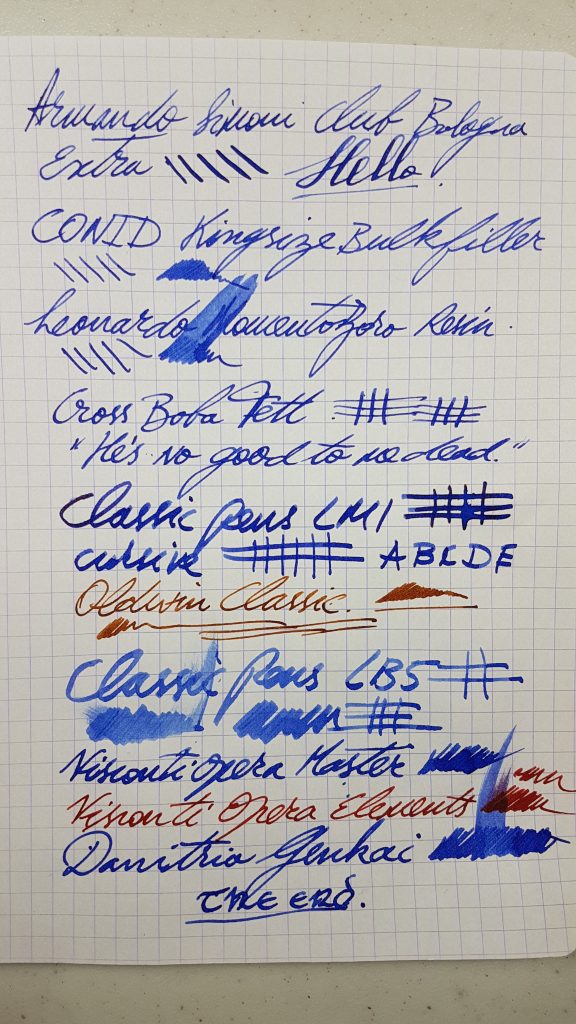 Armando Simoni Club Bologna
Extra Hello.
CONID Kingsize Bulkfiller
Leonardo MomentoZero Resin.
Cross Boba Fett
"He's no good to me dead."
Classic pens LM1
cursive ABCDE
Oldwin Classic.
Classic Pens LB5
Visconti Opera Master
Visconti Opera Elements
Danitrio Genkai
THE END.